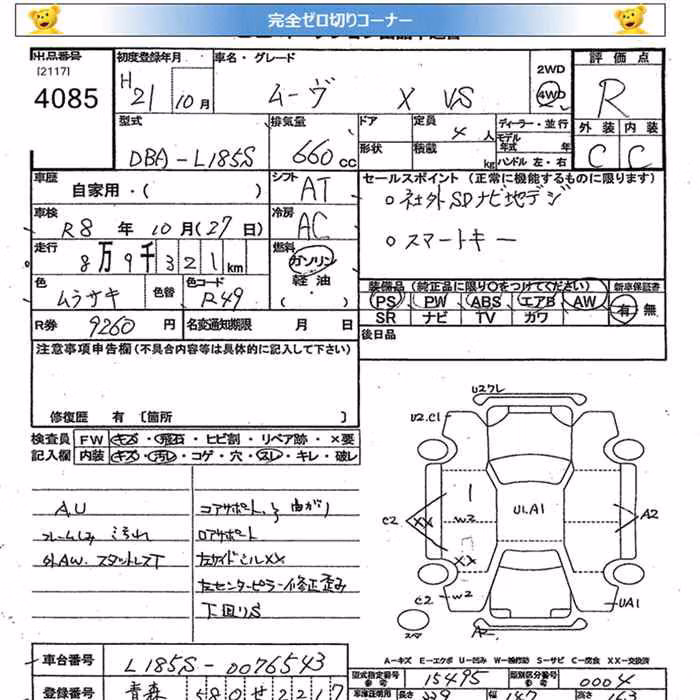 完全ゼロ切りコーナー
出品番号
[2117]
4085
初度登録年月
H
21 10月
車名・グレード
ムーヴ X VS
2WD
4WD
評価点
R
型式
DBA-L185S
排気量
660cc
ドア
定員
4人
形状
積載
kg
ディーラー・並行
モデル年式 年
ハンドル 左・右
外装 内装
C C
車歴
自家用・( )
シフト
AT
車検
R8年10月(27日)
冷房
AC
走行
8万9千321km
燃料
ガソリン
軽油
色
ムラサキ
色替
色コード
R49
R券 9260円
名変通知期限 月 日
セールスポイント (正常に機能するものに限ります)
○社外SDナビ地デジ
○スマートキー
装備品 (純正品に限り○をつけてください) 新車保証書
PS PW ABS エアB AW 有・無
SR ナビ TV カワ
後日品
注意事項申告欄(不具合内容等は具体的に記入して下さい)
修復歴 有 〔箇所 〕
検査員記入欄
FW キズ・飛石・ヒビ割・リペア跡・×要
内装 キズ・汚レ・コゲ・穴・スレ・キレ・破レ
AU
外AW.スタットレスT
コアサポート 曲がり
ロアサポート
左サイドシルXX
左センターピラー修正歪み
下回りS
U2ワレ
U2.C1
C2
XX
W2
U1.A1
A2
XX
C2
W2
UA1
スマ
A-キズ E-エクボ U-凹み W-補修跡 S-サビ C-腐食 XX-交換済
車台番号 L185S-0076543
型式指定番号 15495
類別区分番号 0004
登録番号 青森 580せ2217